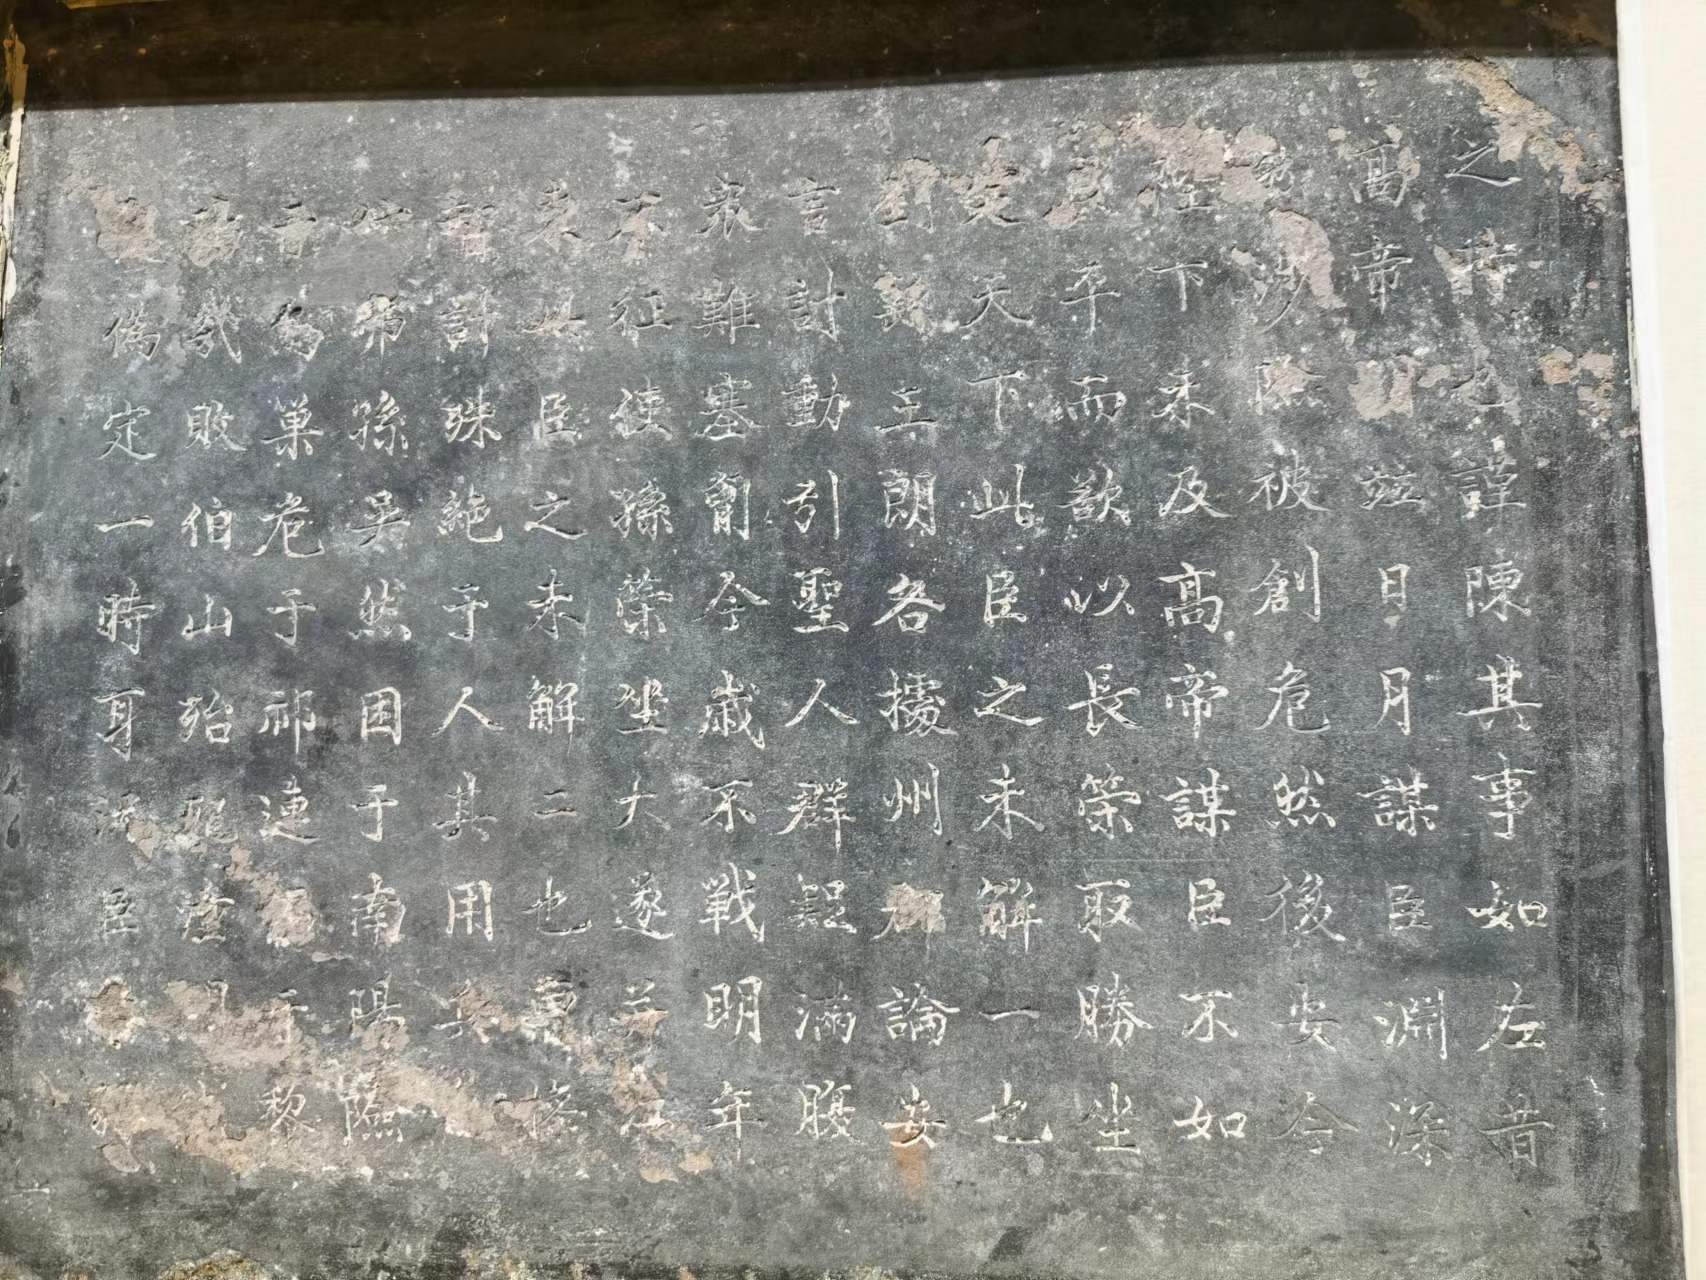 之時也謹陳其事如左昔
高帝明竝日月謀臣淵深
然涉險被創危然後安今
陛下未及高帝謀臣不如
良平而欲以長策取勝坐
定天下此臣之未解一也
劉繇王朗各據州郡論安
言計動引聖人群疑滿腹
衆難塞胷今歲不戰明年
不征使孫策坐大遂并江
東此臣之未解二也曹操
智計殊絶于人其用兵
孫吳然困于南陽險
于烏巢危于祁連于黎
陽幾敗伯山殆死潼
偽定一時耳況臣